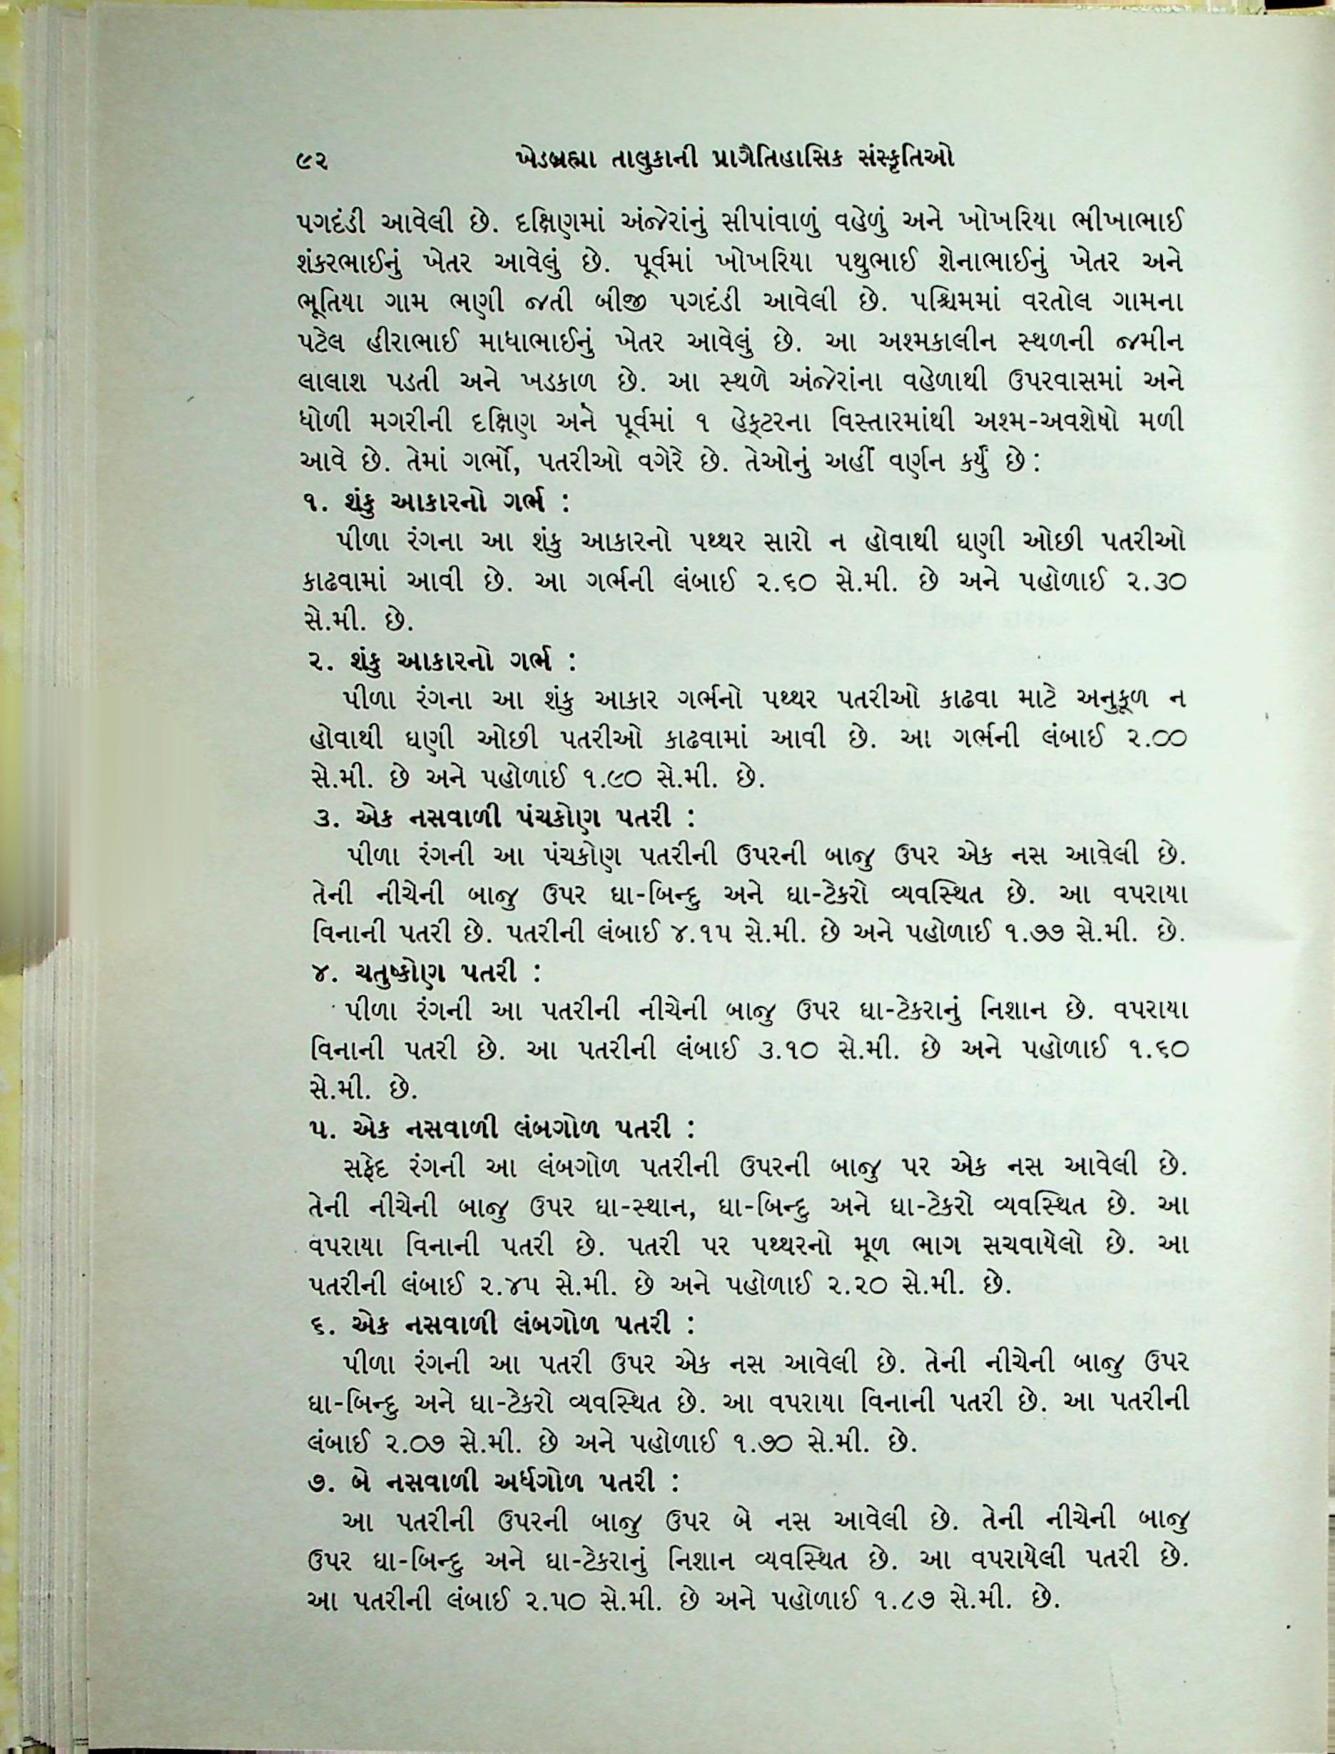 ૯૨ ખેડબ્રહ્મા તાલુકાની પ્રાગૈતિહાસિક સંસ્કૃતિઓ
પગદંડી આવેલી છે. દક્ષિણમાં અંજેરાંનું સીપાંવાળું વહેળું અને ખોખરિયા ભીખાભાઈ
શંકરભાઈનું ખેતર આવેલું છે. પૂર્વમાં ખોખરિયા પથુભાઈ શેનાભાઈનું ખેતર અને
ભૂતિયા ગામ ભણી જતી બીજી પગદંડી આવેલી છે. પશ્ચિમમાં વરતોલ ગામના
પટેલ હીરાભાઈ માધાભાઈનું ખેતર આવેલું છે. આ અશ્મકાલીન સ્થળની જમીન
લાલાશ પડતી અને ખડકાળ છે. આ સ્થળે અંજેરાંના વહેળાથી ઉપરવાસમાં અને
ધોળી મગરીની દક્ષિણ અને પૂર્વમાં ૧ હેક્ટરના વિસ્તારમાંથી અશ્મ-અવશેષો મળી
આવે છે. તેમાં ગર્ભો, પતરીઓ વગેરે છે. તેઓનું અહીં વર્ણન કર્યું છે :
૧. શંકુ આકારનો ગર્ભ :
પીળા રંગના આ શંકુ આકારનો પથ્થર સારો ન હોવાથી ઘણી ઓછી પતરીઓ
કાઢવામાં આવી છે. આ ગર્ભની લંબાઈ ૨.૬૦ સે.મી. છે અને પહોળાઈ ૨.૩૦
સે.મી. છે.
૨. શંકુ આકારનો ગર્ભ :
પીળા રંગના આ શંકુ આકાર ગર્ભનો પથ્થર પતરીઓ કાઢવા માટે અનુકૂળ ન
હોવાથી ઘણી ઓછી પતરીઓ કાઢવામાં આવી છે. આ ગર્ભની લંબાઈ ૨.૦૦
સે.મી. છે અને પહોળાઈ ૧.૯૦ સે.મી. છે.
૩. એક નસવાળી પંચકોણ પતરી :
પીળા રંગની આ પંચકોણ પતરીની ઉપરની બાજુ ઉપર એક નસ આવેલી છે.
તેની નીચેની બાજુ ઉપર ઘા-બિન્દુ અને ઘા-ટેકરો વ્યવસ્થિત છે. આ વપરાયા
વિનાની પતરી છે. પતરીની લંબાઈ ૪.૧૫ સે.મી. છે અને પહોળાઈ ૧.૭૭ સે.મી. છે.
૪. ચતુષ્કોણ પતરી :
પીળા રંગની આ પતરીની નીચેની બાજુ ઉપર ઘા-ટેકરાનું નિશાન છે. વપરાયા
વિનાની પતરી છે. આ પતરીની લંબાઈ ૩.૧૦ સે.મી. છે અને પહોળાઈ ૧.૬૦
સે.મી. છે.
૫. એક નસવાળી લંબગોળ પતરી :
સફેદ રંગની આ લંબગોળ પતરીની ઉપરની બાજુ પર એક નસ આવેલી છે.
તેની નીચેની બાજુ ઉપર ઘા-સ્થાન, ઘા-બિન્દુ અને ઘા-ટેકરો વ્યવસ્થિત છે. આ
વપરાયા વિનાની પતરી છે. પતરી પર પથ્થરનો મૂળ ભાગ સચવાયેલો છે. આ
પતરીની લંબાઈ ૨.૪૫ સે.મી. છે અને પહોળાઈ ૨.૨૦ સે.મી. છે.
૬. એક નસવાળી લંબગોળ પતરી :
પીળા રંગની આ પતરી ઉપર એક નસ આવેલી છે. તેની નીચેની બાજુ ઉપર
ઘા-બિન્દુ અને ઘા-ટેકરો વ્યવસ્થિત છે. આ વપરાયા વિનાની પતરી છે. આ પતરીની
લંબાઈ ૨.૦૭ સે.મી. છે અને પહોળાઈ ૧.૭૦ સે.મી. છે.
૭. બે નસવાળી અર્ધગોળ પતરી :
આ પતરીની ઉપરની બાજુ ઉપર બે નસ આવેલી છે. તેની નીચેની બાજુ
ઉપર ઘા-બિન્દુ અને ઘા-ટેકરાનું નિશાન વ્યવસ્થિત છે. આ વપરાયેલી પતરી છે.
આ પતરીની લંબાઈ ૨.૫૦ સે.મી. છે અને પહોળાઈ ૧.૮૭ સે.મી. છે.